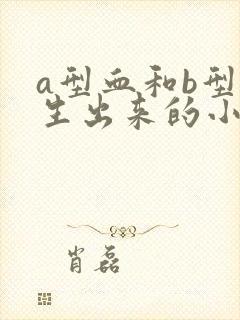 a型血和b型
生出来的小
肖磊